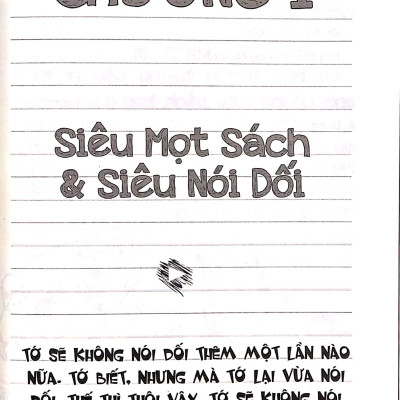 CHƯƠNG 1
Siêu Mọt Sách
& Siêu Nói Dối
TỚ SẼ KHÔNG NÓI DỐI THÊM MỘT LẦN NÀO
NỮA. TỚ BIẾT, NHƯNG MÀ TỚ LẠI VỪA NÓI
DỐI. THẾ THÌ THÔI VẬY. TỚ SẼ KHÔNG NÓI